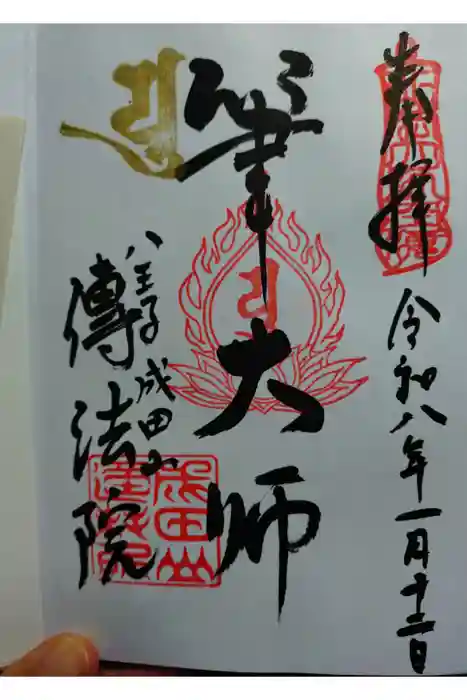 奉拝
令和八年一月十二日
筆大師
八王子成田山
傳法院
成田山
傳法院